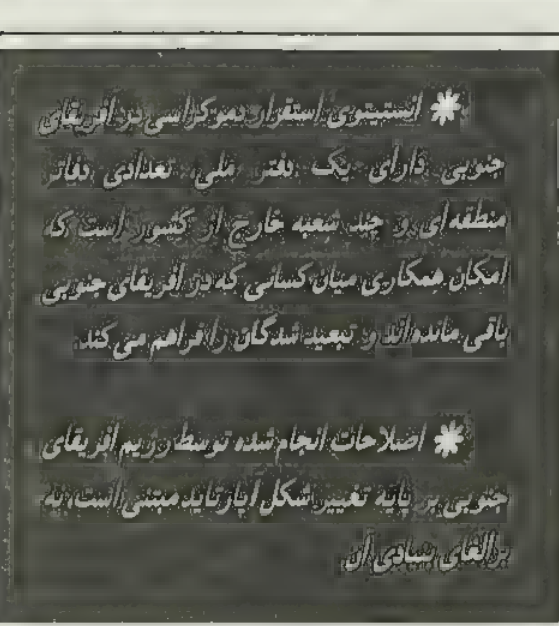 * انستیتوی استقرار دموکراسی در آفریقای
جنوبی دارای یک دفتر ملی، تعدادی دفاتر
منطقه‌ای و چند شعبه خارج از کشور است که
امکان همکاری میان کسانی که در آفریقای جنوبی
باقی مانده‌اند و تبعید شدگان را فراهم می کند.
* اصلاحات انجام شده توسط رژیم آفریقای
جنوبی بر پایه تغییر شکل آپارتاید مبتنی است، نه
بر الغای بنیادی آن.